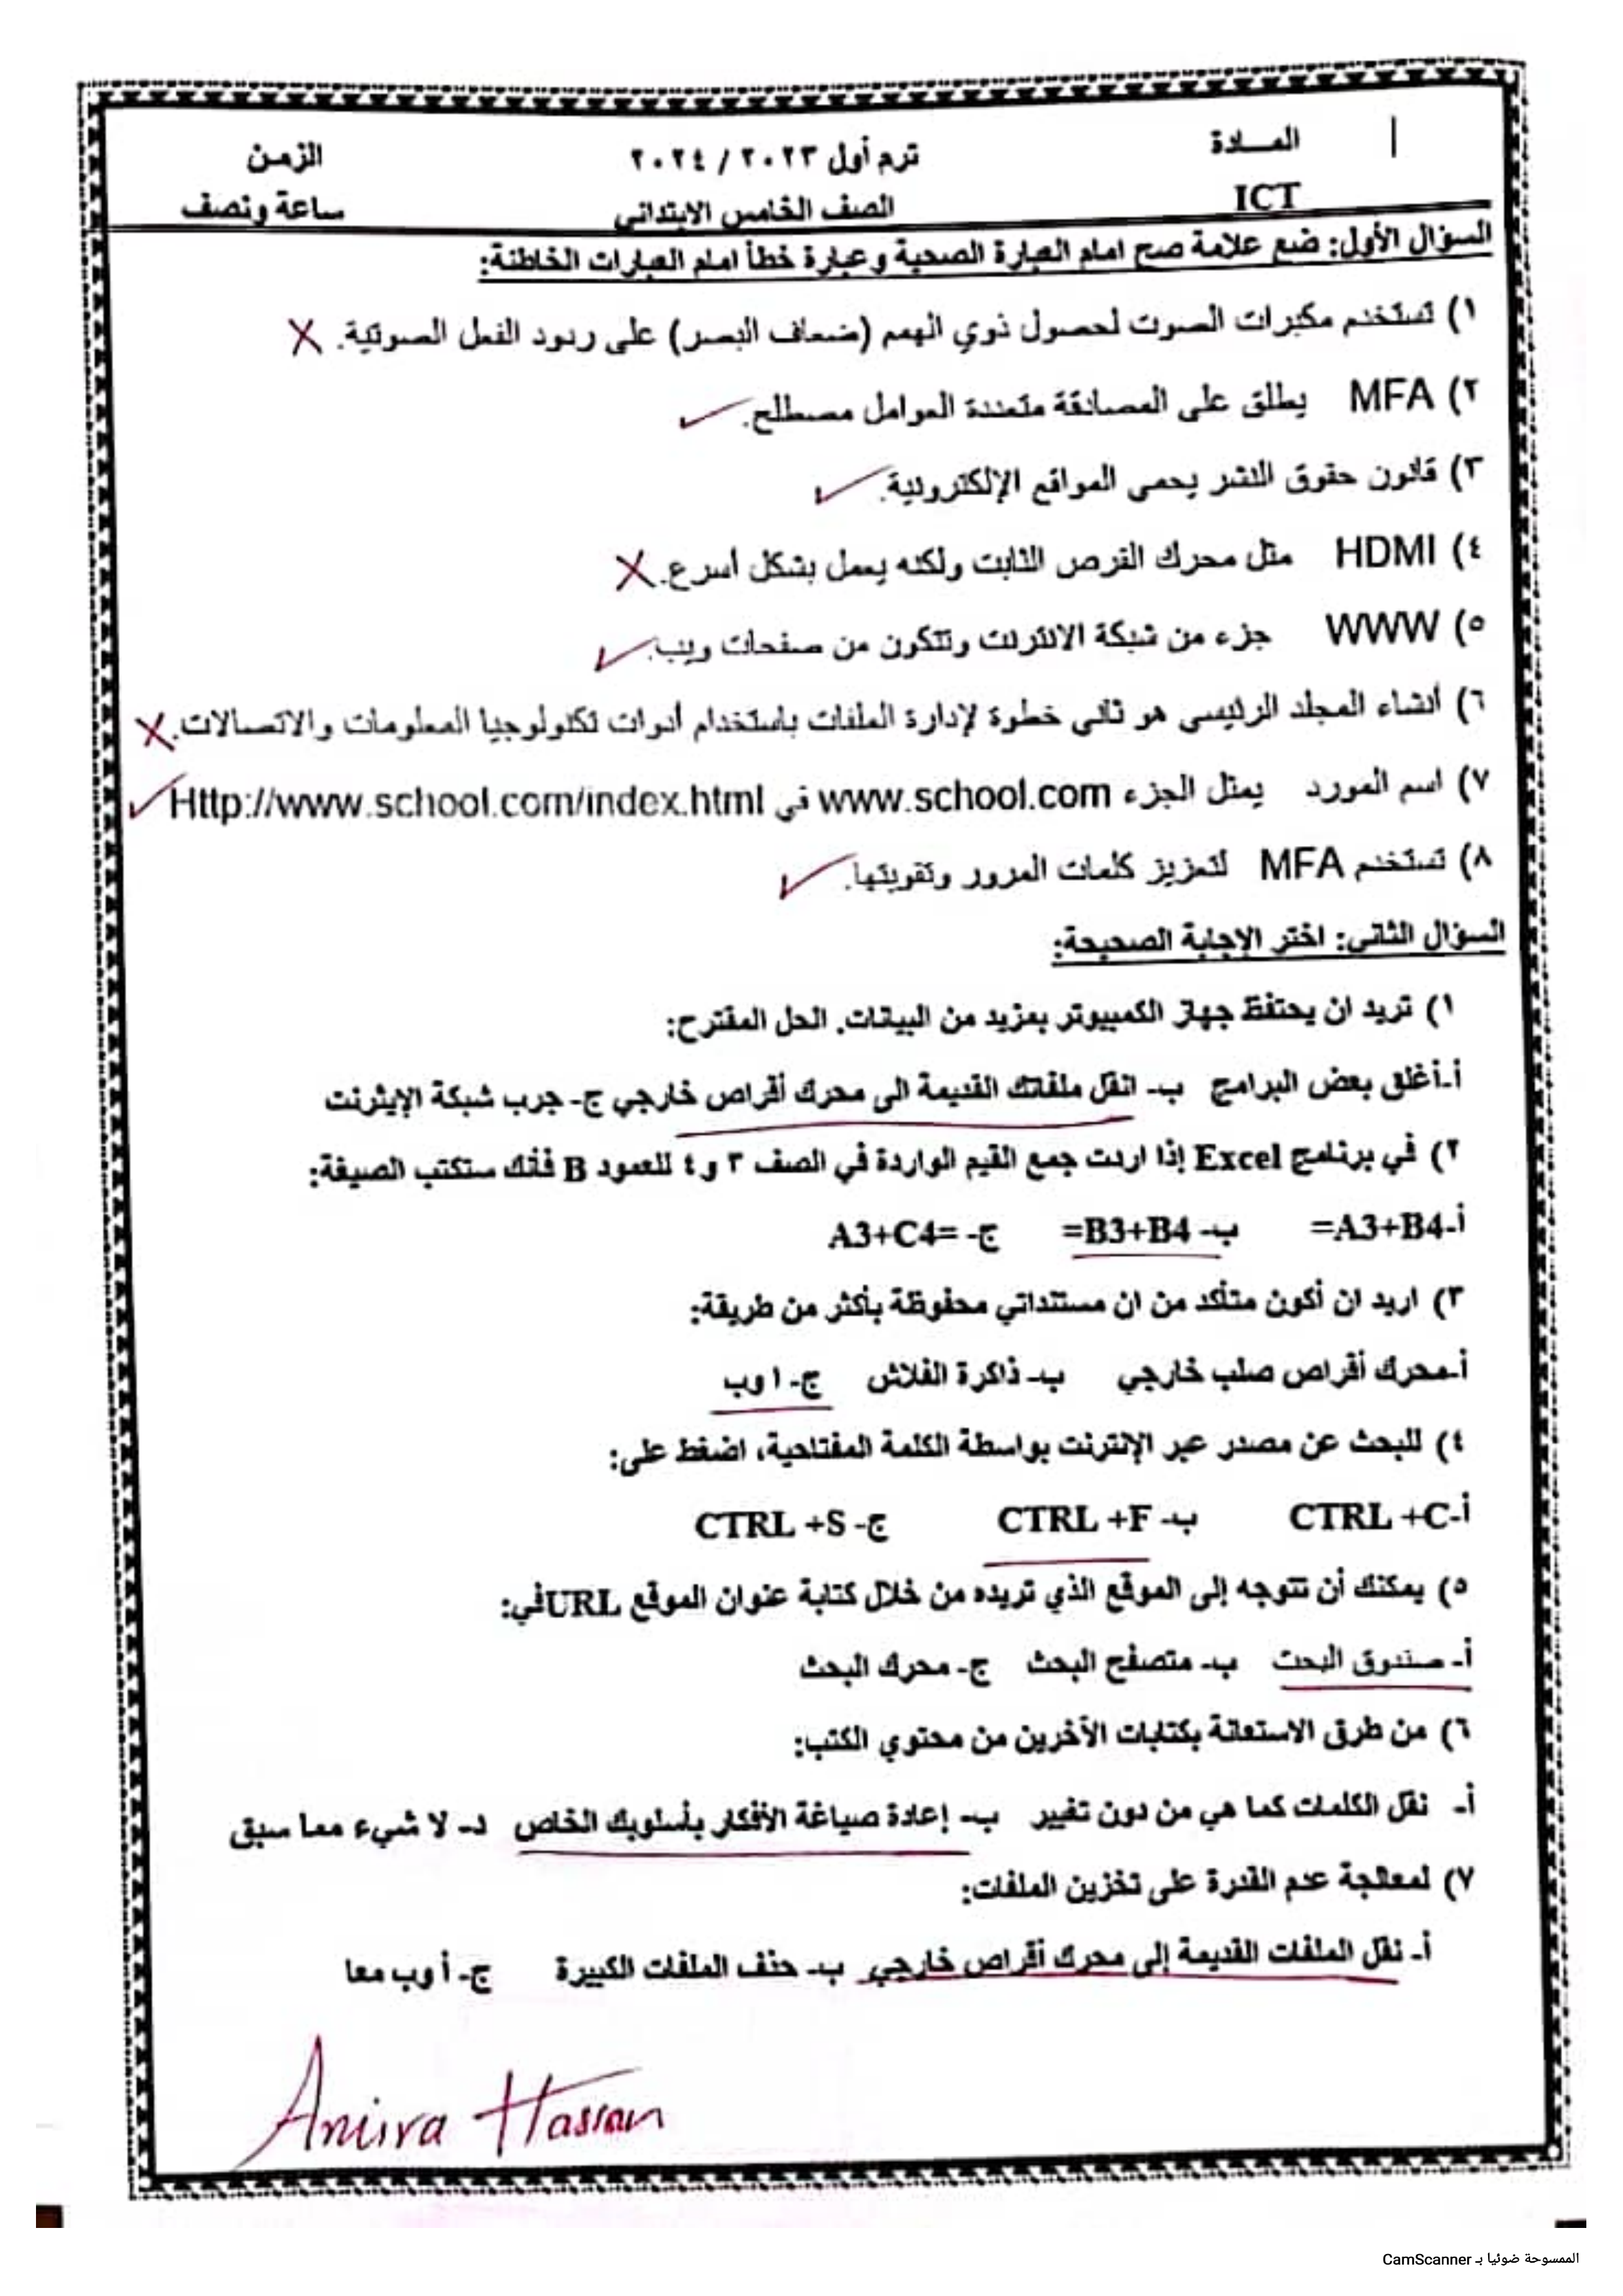 المـــادة ترم أول ٢٠٢٣ / ٢٠٢٤ الزمن
ICT الصف الخامس الابتدائي ساعة ونصف
السؤال الأول: ضع علامة صح امام العبارة الصحية وعبارة خطأ امام العبارات الخاطئة:
١) تستخدم مكبرات الصوت لحصول ذوي الهمم (ضعاف البصر) على ردود الفعل الصوتية. X
٢) MFA يطلق على المصادقة متعددة العوامل مصطلح. ✓
٣) قانون حقوق النشر يحمى المواقع الإلكترونية. ✓
٤) HDMI مثل محرك القرص الثابت ولكنه يعمل بشكل أسرع. X
٥) WWW جزء من شبكة الانترنت وتتكون من صفحات ويب. ✓
٦) أنشاء المجلد الرئيسى هو ثانى خطوة لإدارة الملفات باستخدام أدوات تكنولوجيا المعلومات والاتصالات. X
٧) اسم المورد يمثل الجزء www.school.com في Http://www.school.com/index.html ✓
٨) تستخدم MFA لتعزيز كلمات المرور وتقويتها. ✓
السؤال الثاني: اختر الإجابة الصحيحة:
١) تريد ان يحتفظ جهاز الكمبيوتر بمزيد من البيانات. الحل المقترح:
أ-أغلق بعض البرامج ب- انقل ملفاتك القديمة الى محرك أقراص خارجي ج- جرب شبكة الإيثرنت
٢) في برنامج Excel إذا اردت جمع القيم الواردة في الصف ٣ و٤ للعمود B فنك ستكتب الصيغة:
أ-A3+B4= ب- B3+B4= ج- =A3+C4
٣) اريد ان أكون متأكد من ان مستنداتي محفوظة بأكثر من طريقة:
أ-محرك أقراص صلب خارجي ب- ذاكرة الفلاش ج- ا وب
٤) للبحث عن مصدر عبر الإنترنت بواسطة الكلمة المفتاحية، اضغط على:
أ-CTRL +C ب- CTRL +F ج- CTRL +S
٥) يمكنك أن تتوجه إلى الموقع الذي تريده من خلال كتابة عنوان الموقع URLفي:
أ- صندوق البحث ب- متصفح البحث ج- محرك البحث
٦) من طرق الاستعانة بكتابات الآخرين من محتوي الكتب:
أ- نقل الكلمات كما هي من دون تغيير ب- إعادة صياغة الأفكار بأسلوبك الخاص د- لا شيء مما سبق
٧) لمعالجة عدم القدرة على تخزين الملفات:
أ- نقل الملفات القديمة إلى محرك أقراص خارجي ب- حذف الملفات الكبيرة ج- أ وب معا
Amira Hassan
الممسوحة ضوئيا بـ CamScanner